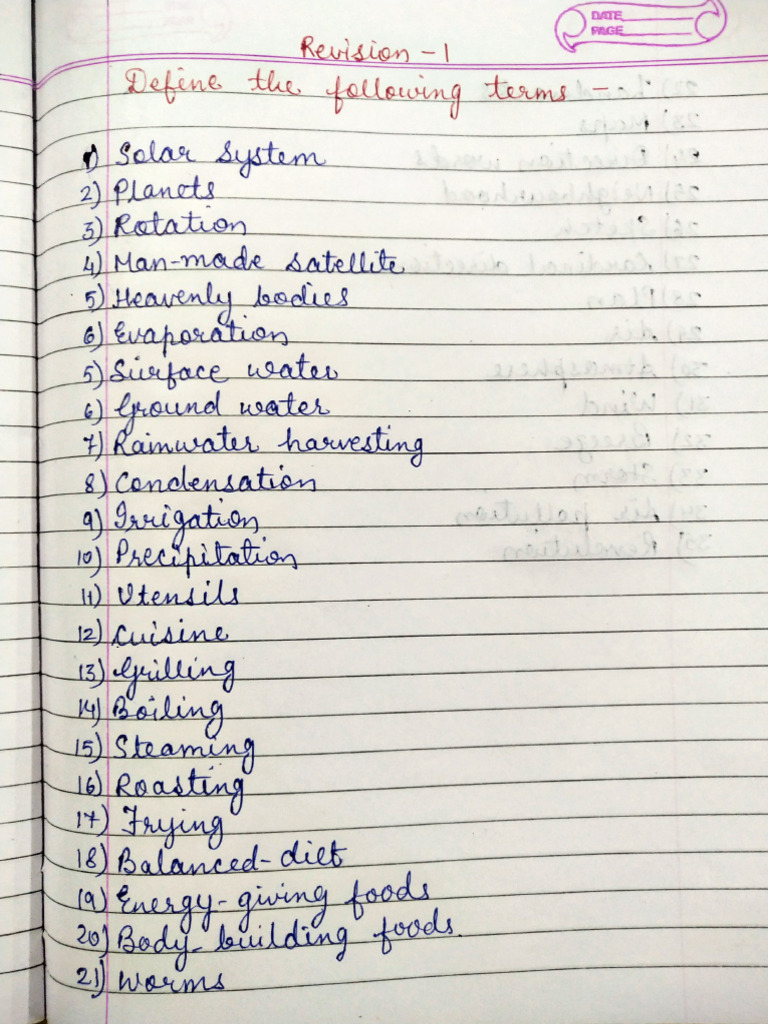 DATE
PAGE
Revision - 1
Define the following terms -
1) Solar System
2) Planets
3) Rotation
4) Man-made satellite
5) Heavenly bodies
6) Evaporation
5) Surface water
6) Ground water
7) Rainwater harvesting
8) Condensation
9) Irrigation
10) Precipitation
11) Utensils
12) Cuisine
13) Grilling
14) Boiling
15) Steaming
16) Roasting
17) Frying
18) Balanced-diet
19) Energy-giving foods
20) Body-building foods.
21) Worms